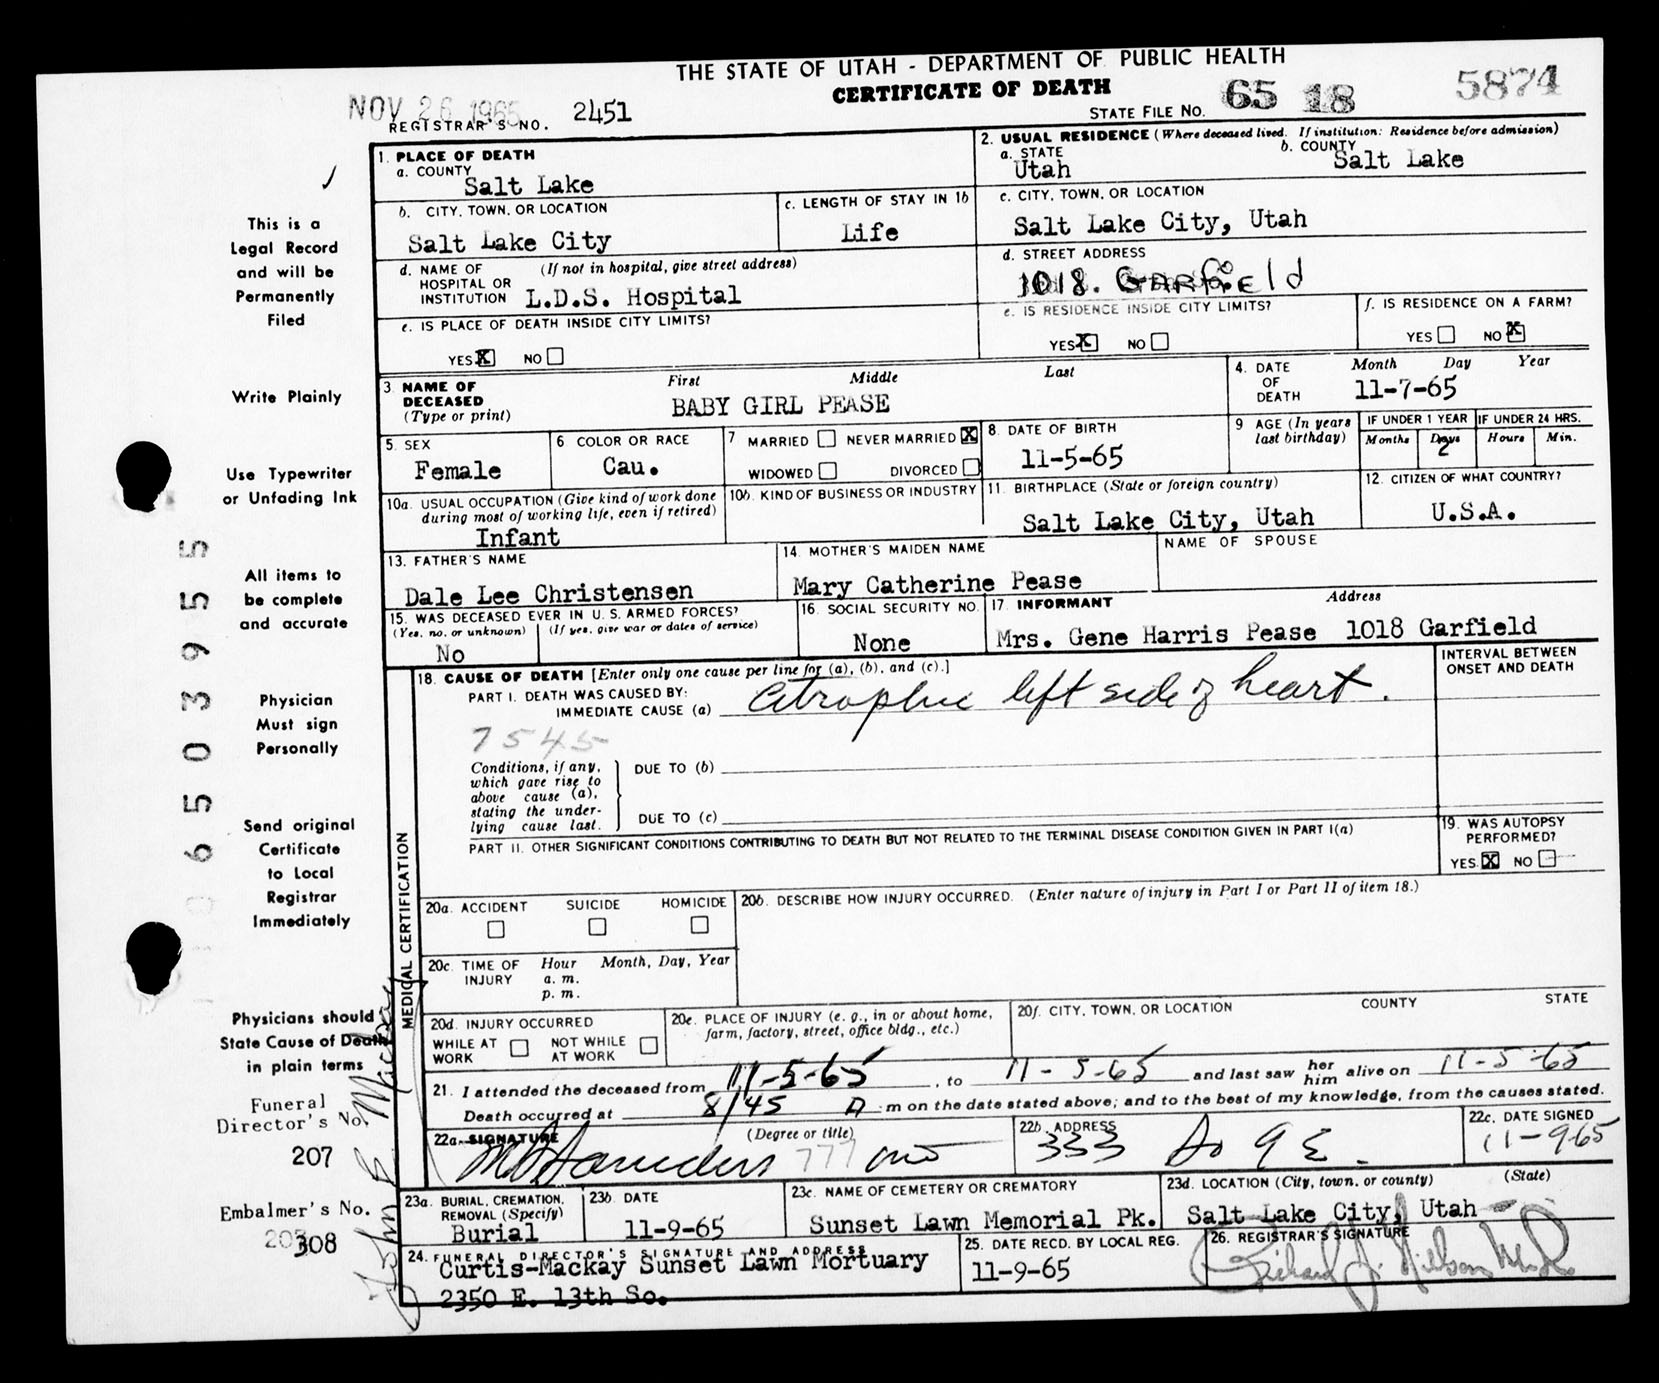 THE STATE OF UTAH - DEPARTMENT OF PUBLIC HEALTH
CERTIFICATE OF DEATH
NOV 26 1965
REGISTRAR'S NO. 2451
STATE FILE NO. 65 18 5874
1. PLACE OF DEATH
a. COUNTY
Salt Lake
2. USUAL RESIDENCE (Where deceased lived. If institution: Residence before admission)
a. STATE
Utah
b. COUNTY
Salt Lake
b. CITY, TOWN, OR LOCATION
Salt Lake City
c. LENGTH OF STAY IN 1b
Life
c. CITY, TOWN, OR LOCATION
Salt Lake City, Utah
d. NAME OF HOSPITAL OR INSTITUTION (If not in hospital, give street address)
L.D.S. Hospital
d. STREET ADDRESS
1018. GARFiEld
e. IS PLACE OF DEATH INSIDE CITY LIMITS?
YES X NO
e. IS RESIDENCE INSIDE CITY LIMITS?
YES X NO
f. IS RESIDENCE ON A FARM?
YES NO X
3. NAME OF DECEASED (Type or print)
First Middle Last
BABY GIRL PEASE
4. DATE OF DEATH Month Day Year
11-7-65
5. SEX
Female
6 COLOR OR RACE
Cau.
7 MARRIED NEVER MARRIED X
WIDOWED DIVORCED
8. DATE OF BIRTH
11-5-65
9 AGE (In years last birthday)
IF UNDER 1 YEAR
Months Days
2
IF UNDER 24 HRS.
Hours Min.
10a. USUAL OCCUPATION (Give kind of work done during most of working life, even if retired)
Infant
10b. KIND OF BUSINESS OR INDUSTRY
11. BIRTHPLACE (State or foreign country)
Salt Lake City, Utah
12. CITIZEN OF WHAT COUNTRY?
U.S.A.
13. FATHER'S NAME
Dale Lee Christensen
14. MOTHER'S MAIDEN NAME
Mary Catherine Pease
NAME OF SPOUSE
15. WAS DECEASED EVER IN U.S. ARMED FORCES?
(Yes, no, or unknown) (If yes, give war or dates of service)
No
16. SOCIAL SECURITY NO.
None
17. INFORMANT Address
Mrs. Gene Harris Pease 1018 Garfield
18. CAUSE OF DEATH [Enter only one cause per line for (a), (b), and (c).]
INTERVAL BETWEEN ONSET AND DEATH
PART I. DEATH WAS CAUSED BY:
IMMEDIATE CAUSE (a) atrophic left side of heart.
7545
Conditions, if any, which gave rise to above cause (a), stating the underlying cause last.
DUE TO (b)
DUE TO (c)
PART II. OTHER SIGNIFICANT CONDITIONS CONTRIBUTING TO DEATH BUT NOT RELATED TO THE TERMINAL DISEASE CONDITION GIVEN IN PART I(a)
19. WAS AUTOPSY PERFORMED?
YES X NO
MEDICAL CERTIFICATION
20a. ACCIDENT SUICIDE HOMICIDE
20b. DESCRIBE HOW INJURY OCCURRED. (Enter nature of injury in Part I or Part II of item 18.)
20c. TIME OF INJURY Hour Month, Day, Year
a. m.
p. m.
20d. INJURY OCCURRED
WHILE AT WORK NOT WHILE AT WORK
20e. PLACE OF INJURY (e. g., in or about home, farm, factory, street, office bldg., etc.)
20f. CITY, TOWN, OR LOCATION COUNTY STATE
21. I attended the deceased from 11-5-65, to 11-5-65 and last saw her him alive on 11-5-65
Death occurred at 8/45 A m on the date stated above; and to the best of my knowledge, from the causes stated.
22a. SIGNATURE (Degree or title)
Saunders 777 MD
22b. ADDRESS
333 So 9 E.
22c. DATE SIGNED
11-9-65
23a. BURIAL, CREMATION, REMOVAL (Specify)
Burial
23b. DATE
11-9-65
23c. NAME OF CEMETERY OR CREMATORY
Sunset Lawn Memorial Pk.
23d. LOCATION (City, town, or county) (State)
Salt Lake City, Utah
24. FUNERAL DIRECTOR'S SIGNATURE AND ADDRESS
Curtis-Mackay Sunset Lawn Mortuary
2350 E. 13th So.
25. DATE RECD. BY LOCAL REG.
11-9-65
26. REGISTRAR'S SIGNATURE
Richard J. Nielson MD
This is a
Legal Record
and will be
Permanently
Filed
Write Plainly
Use Typewriter
or Unfading Ink
All items to
be complete
and accurate
Physician
Must sign
Personally
Send original
Certificate
to Local
Registrar
Immediately
Physicians should
State Cause of Death
in plain terms
Funeral
Director's No.
207
Embalmer's No.
308
John B Mackay
650 3955